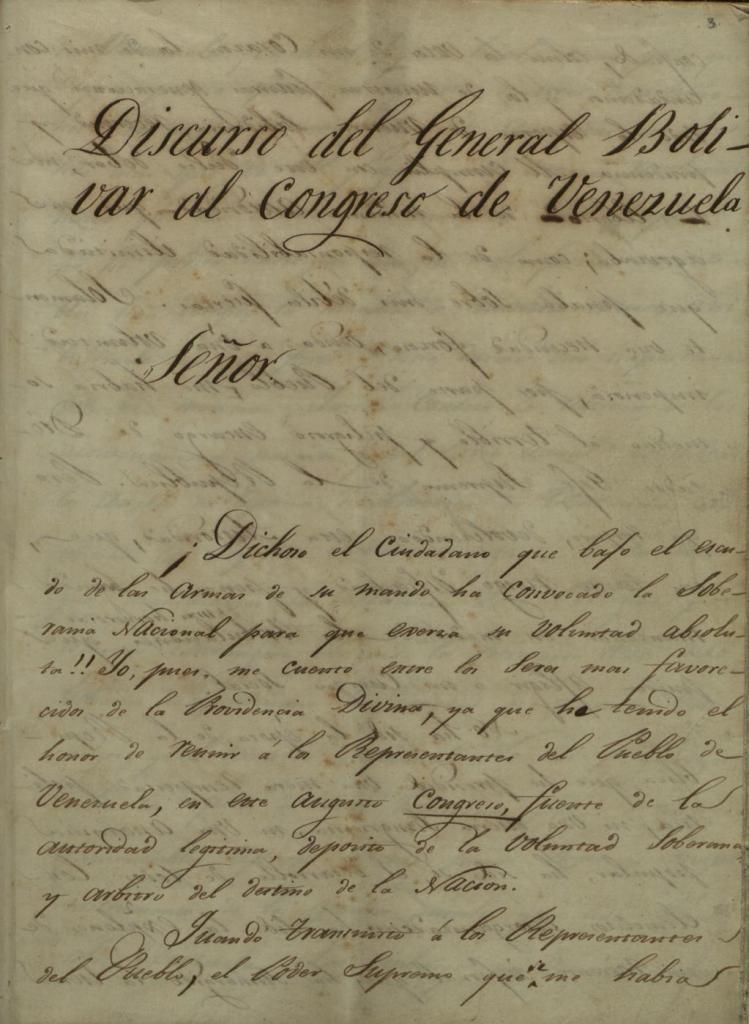 3.
Discurso del General Boli-
var al Congreso de Venezuela
Señor.
¡Dichoso el Ciudadano que bajo el escu-
do de las armas de su mando ha convocado la Sobe-
rania Nacional para que exerza su voluntad absolu-
ta!! Yo, pues, me cuento entre los Seres mas favore-
cidos de la Providencia Divina, ya que he tenido el
honor de reunir á los Representantes del Pueblo de
Venezuela, en este augusto Congreso, fuente de la
autoridad legitima, deposito de la voluntad Soberana
y arbitro del destino de la Nacion.
Quando transmito á los Representantes
del Pueblo, el Poder Supremo que se me habia